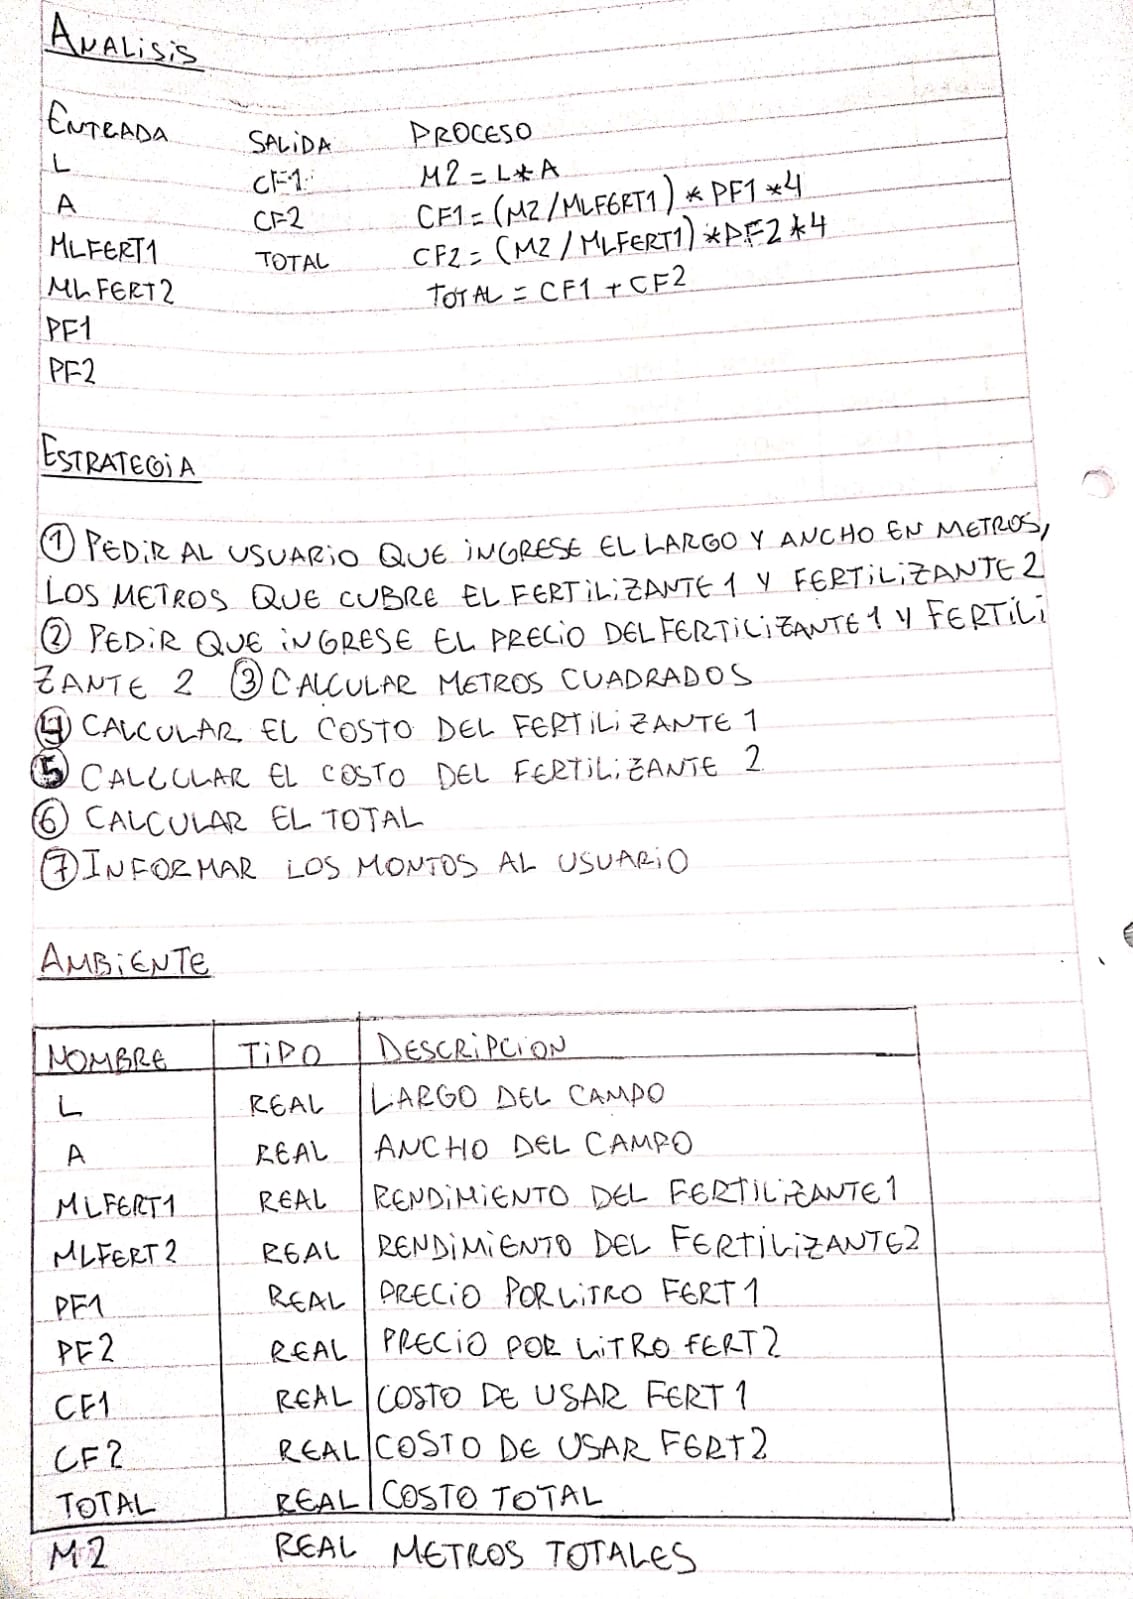 ANALISIS
ENTRADA SALIDA PROCESO
L CF1 M2 = L * A
A CF2 CF1 = (M2/MLFERT1) * PF1 * 4
MLFERT1 TOTAL CF2 = (M2/MLFERT1) * PF2 * 4
MLFERT2 TOTAL = CF1 + CF2
PF1
PF2
ESTRATEGIA
① PEDIR AL USUARIO QUE INGRESE EL LARGO Y ANCHO EN METROS,
LOS METROS QUE CUBRE EL FERTILIZANTE 1 Y FERTILIZANTE 2
② PEDIR QUE INGRESE EL PRECIO DEL FERTILIZANTE 1 Y FERTILI
ZANTE 2 ③ CALCULAR METROS CUADRADOS
④ CALCULAR EL COSTO DEL FERTILIZANTE 1
⑤ CALCULAR EL COSTO DEL FERTILIZANTE 2
⑥ CALCULAR EL TOTAL
⑦ INFORMAR LOS MONTOS AL USUARIO
AMBIENTE
NOMBRE TIPO DESCRIPCION
L REAL LARGO DEL CAMPO
A REAL ANCHO DEL CAMPO
MLFERT1 REAL RENDIMIENTO DEL FERTILIZANTE 1
MLFERT2 REAL RENDIMIENTO DEL FERTILIZANTE 2
PF1 REAL PRECIO POR LITRO FERT 1
PF2 REAL PRECIO POR LITRO FERT 2
CF1 REAL COSTO DE USAR FERT 1
CF2 REAL COSTO DE USAR FERT 2
TOTAL REAL COSTO TOTAL
M2 REAL METROS TOTALES